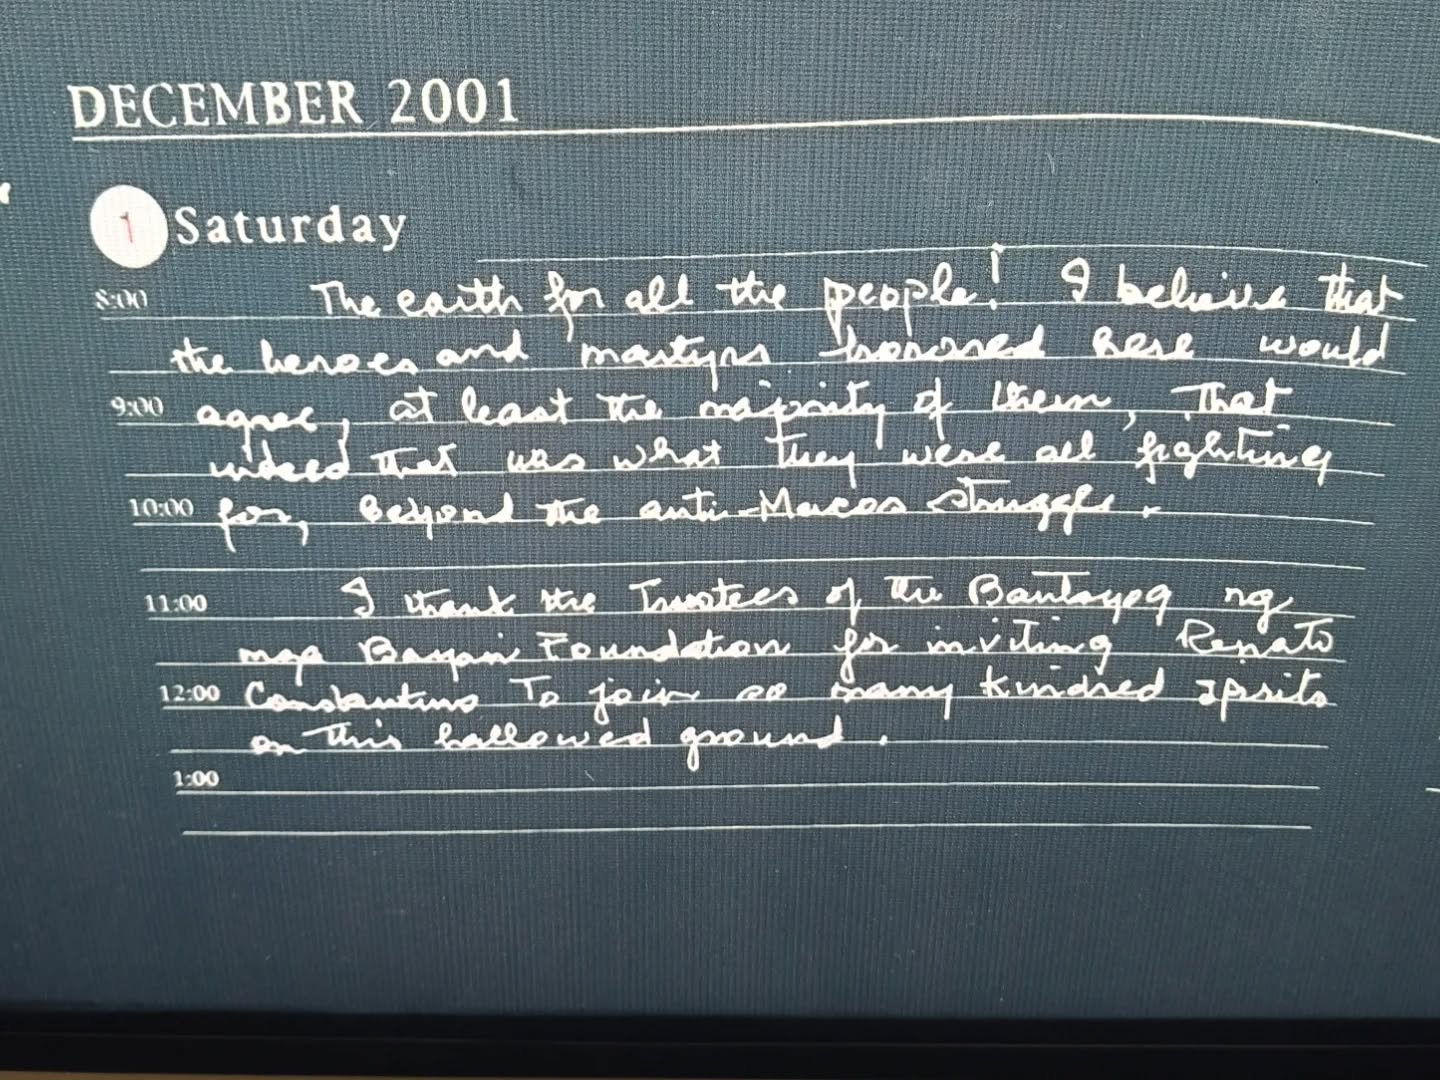 DECEMBER 2001
1 Saturday
8:00 The earth for all the people! I believe that
the heroes and martyrs honored here would
9:00 agree, at least the majority of them, that
indeed that was what they were all fighting
10:00 for, beyond the anti-Marcos struggle.
11:00 I thank the Trustees of the Bantayog ng
mga Bayani Foundation for inviting Renato
12:00 Constantino to join so many kindred spirits
on this hallowed ground.
1:00